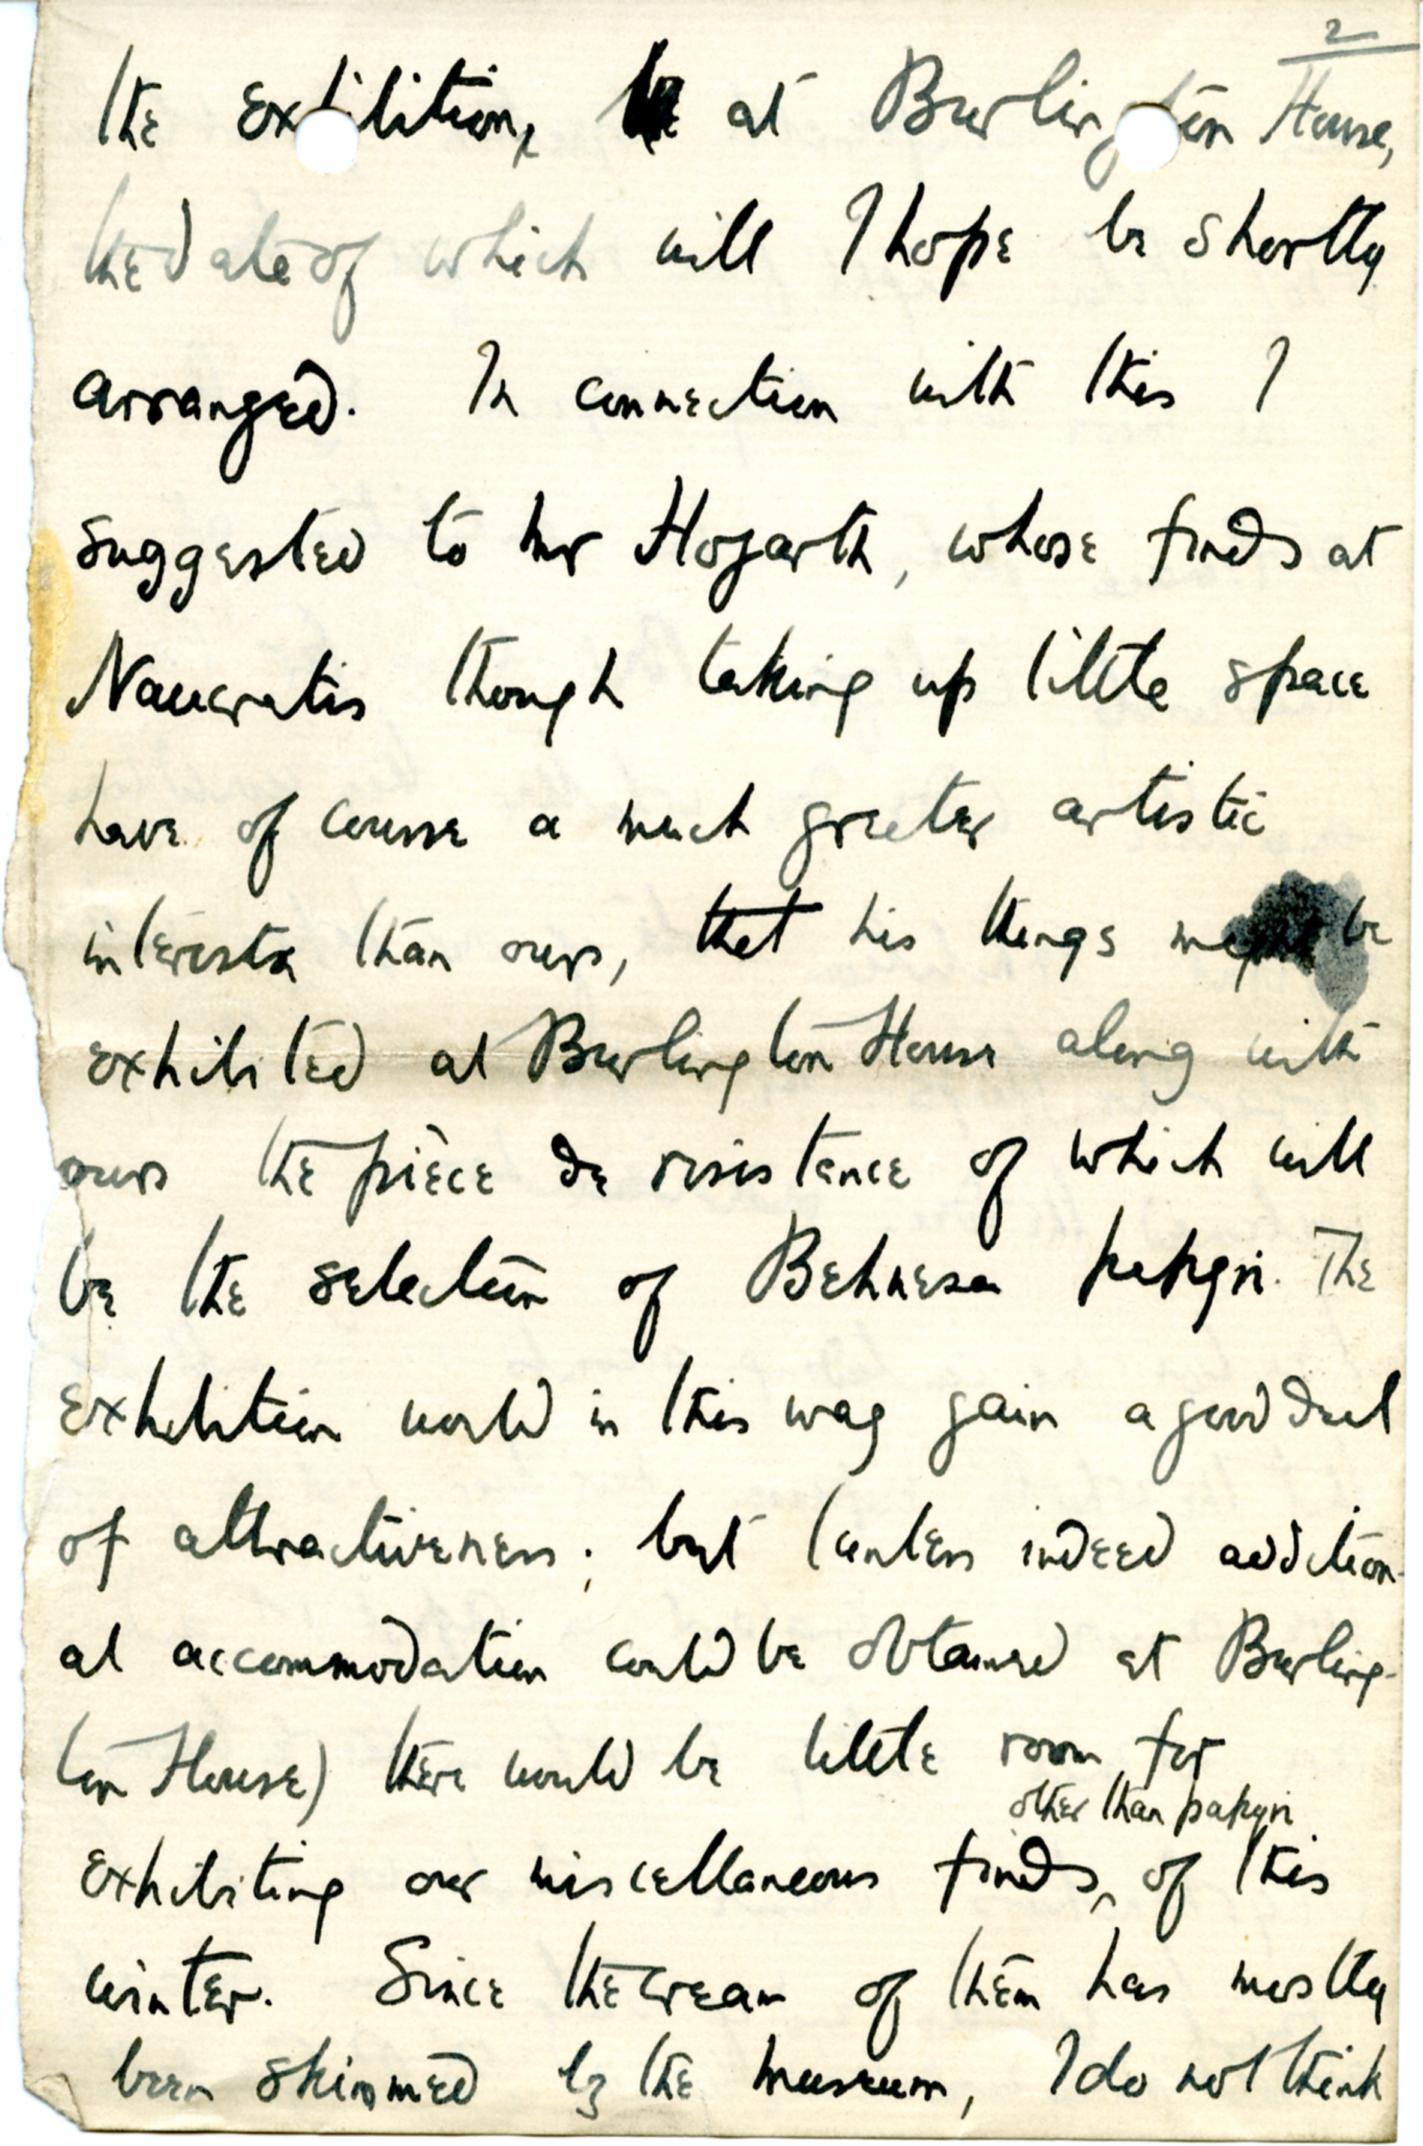 2
the exhibition, at Burlington House,
the date of which will I hope be shortly
arranged. In connection with this I
suggested to Mr Hogarth, whose finds at
Naucratis though taking up little space
have of course a much greater artistic
interest than ours, that his things might be
exhibited at Burlington House along with
ours the pièce de resistance of which will
be the selection of Behnesa papyri. The
exhibition would in this way gain a good deal
of attractiveness; but (unless indeed addition-
al accommodation could be obtained at Burling-
ton House) there would be little room for
other than papyri
exhibiting our miscellaneous finds^ of this
winter. Since the cream of them has mostly
been skimmed by the museum, I do not think